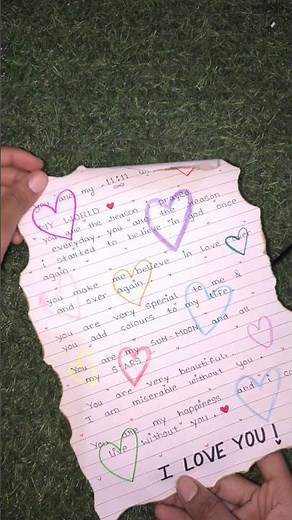 you are my 11:11
MY WORLD
you are the reason I
everyday, you are the reason
i started to believe in god once
again.
you make me believe in love
and over again.
you are very special to me &
you add colours to my life.
You are my SUN-MOON and all
my STARS.
You are very beautiful..
I am miserable without you.
You are my happiness and i ca
live without you.
I LOVE YOU!